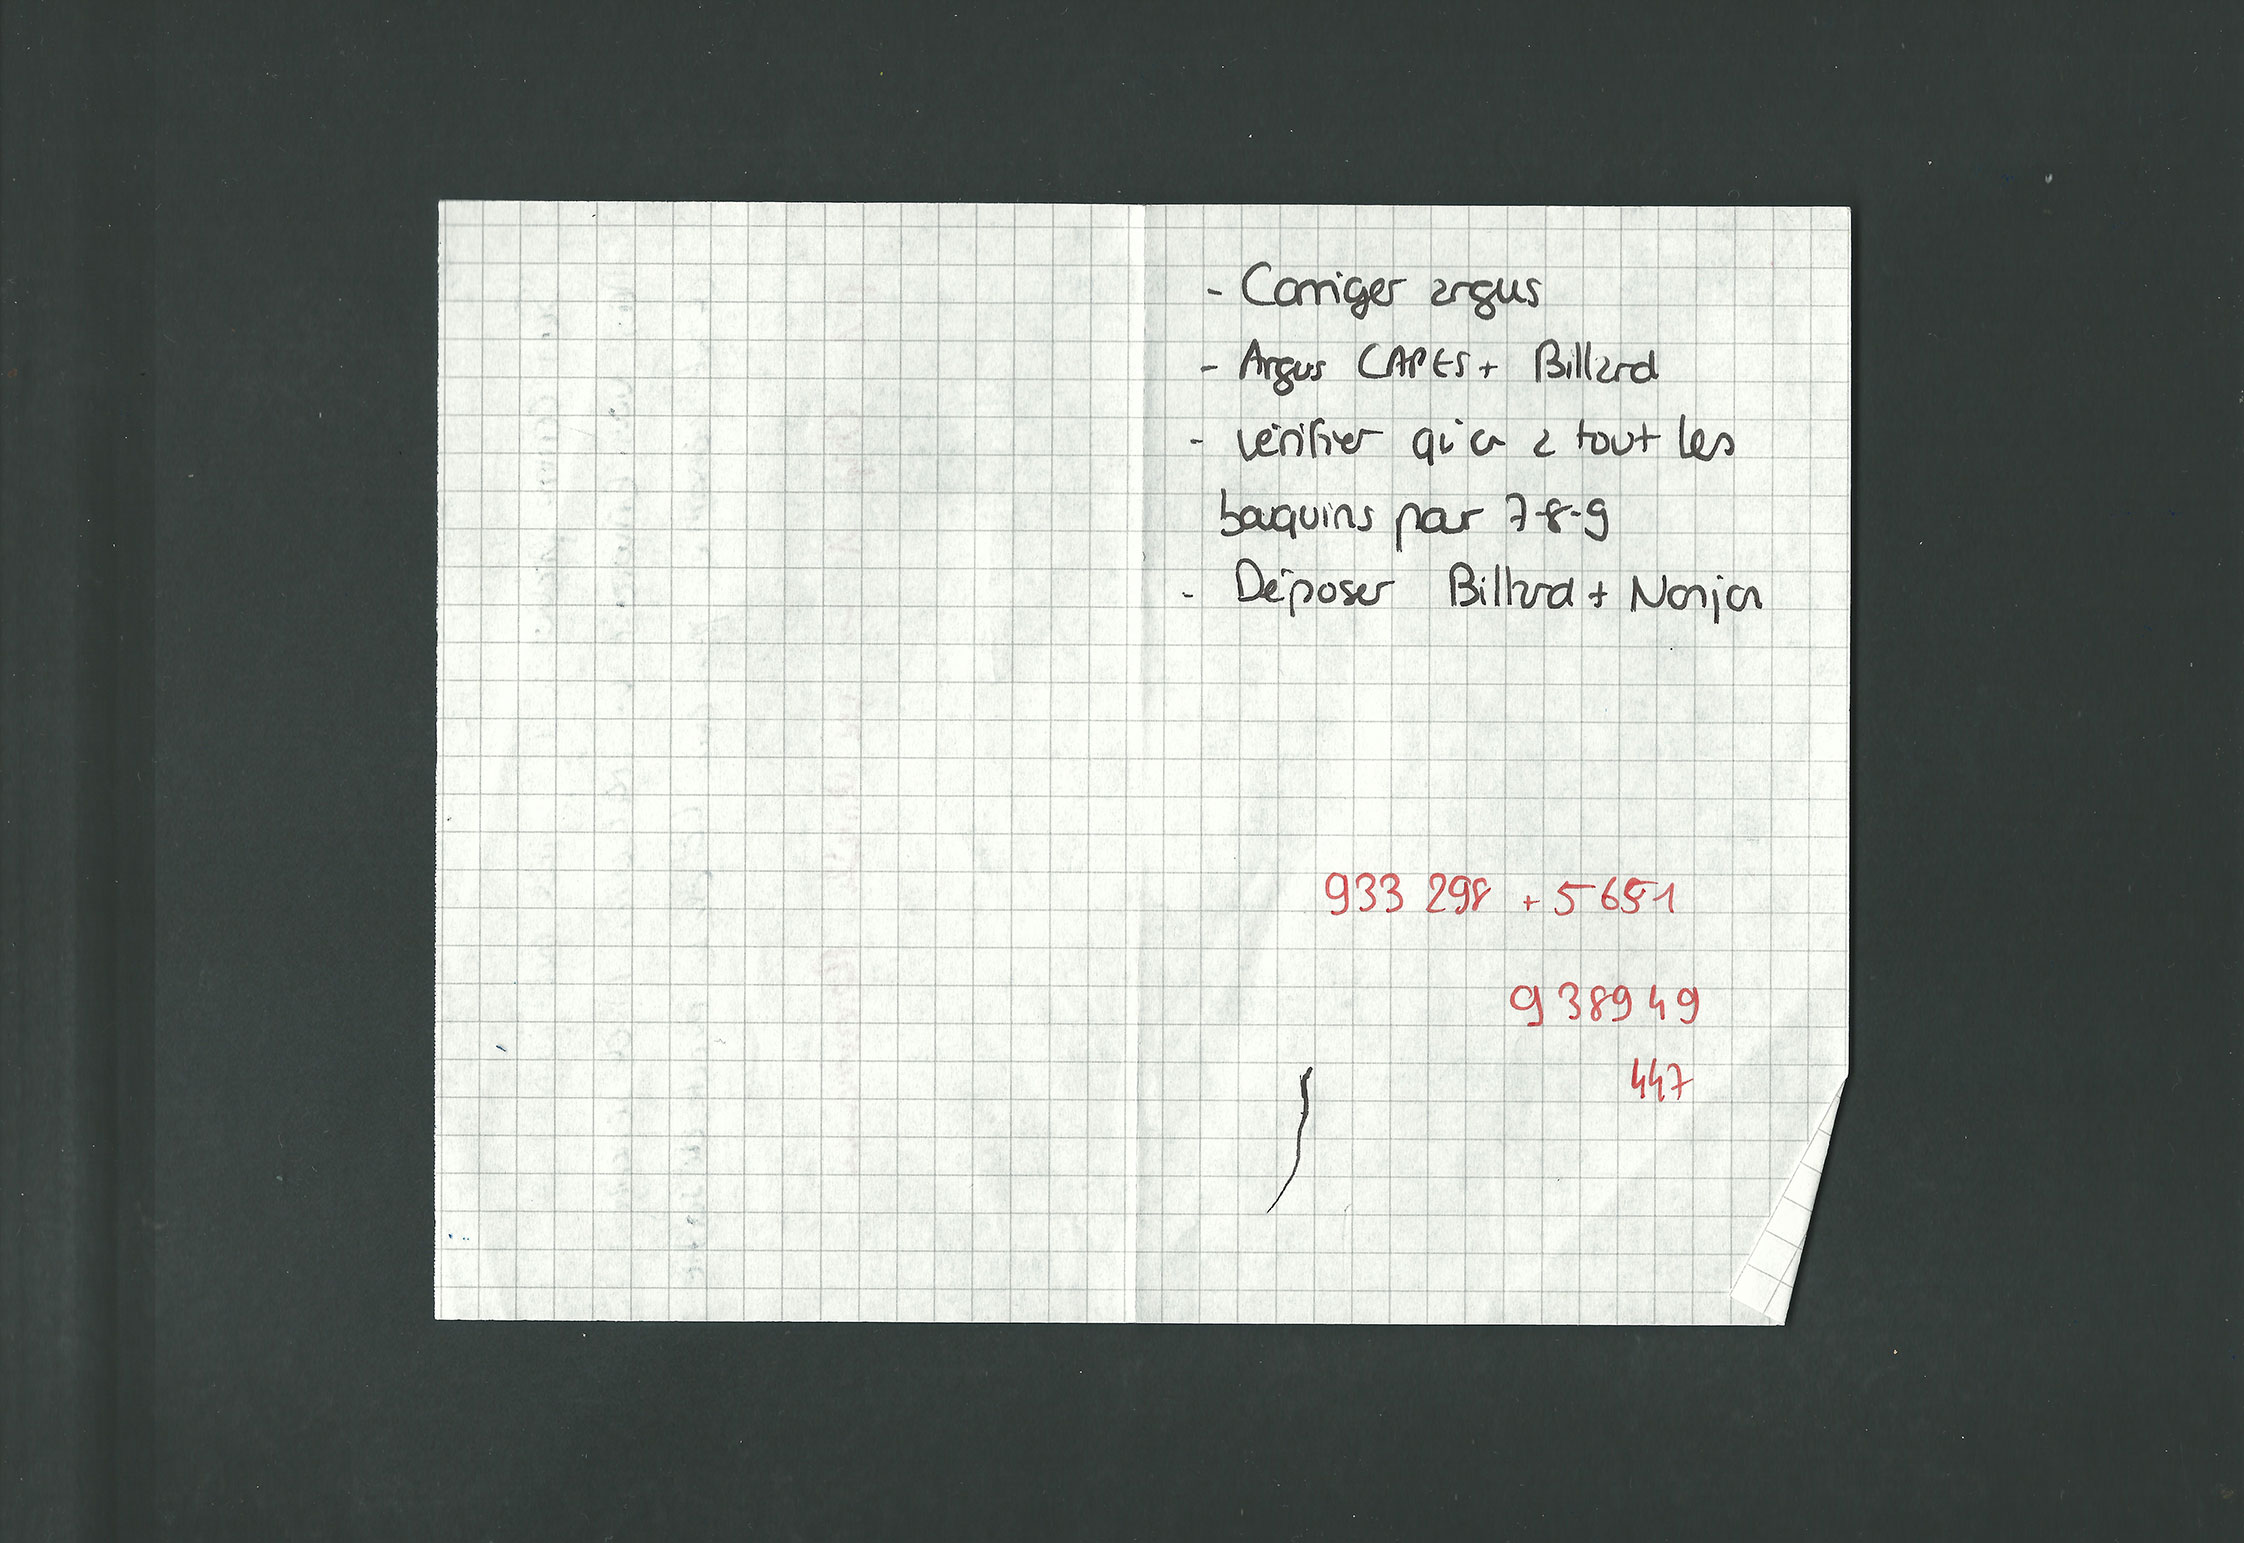 - Corriger argus
- Argus CAPES + Billard
- vérifier qu'a a tout les
bouquins par 7-8-9
- Déposer Billard + Nanjon
933 298 + 5651
938949
447